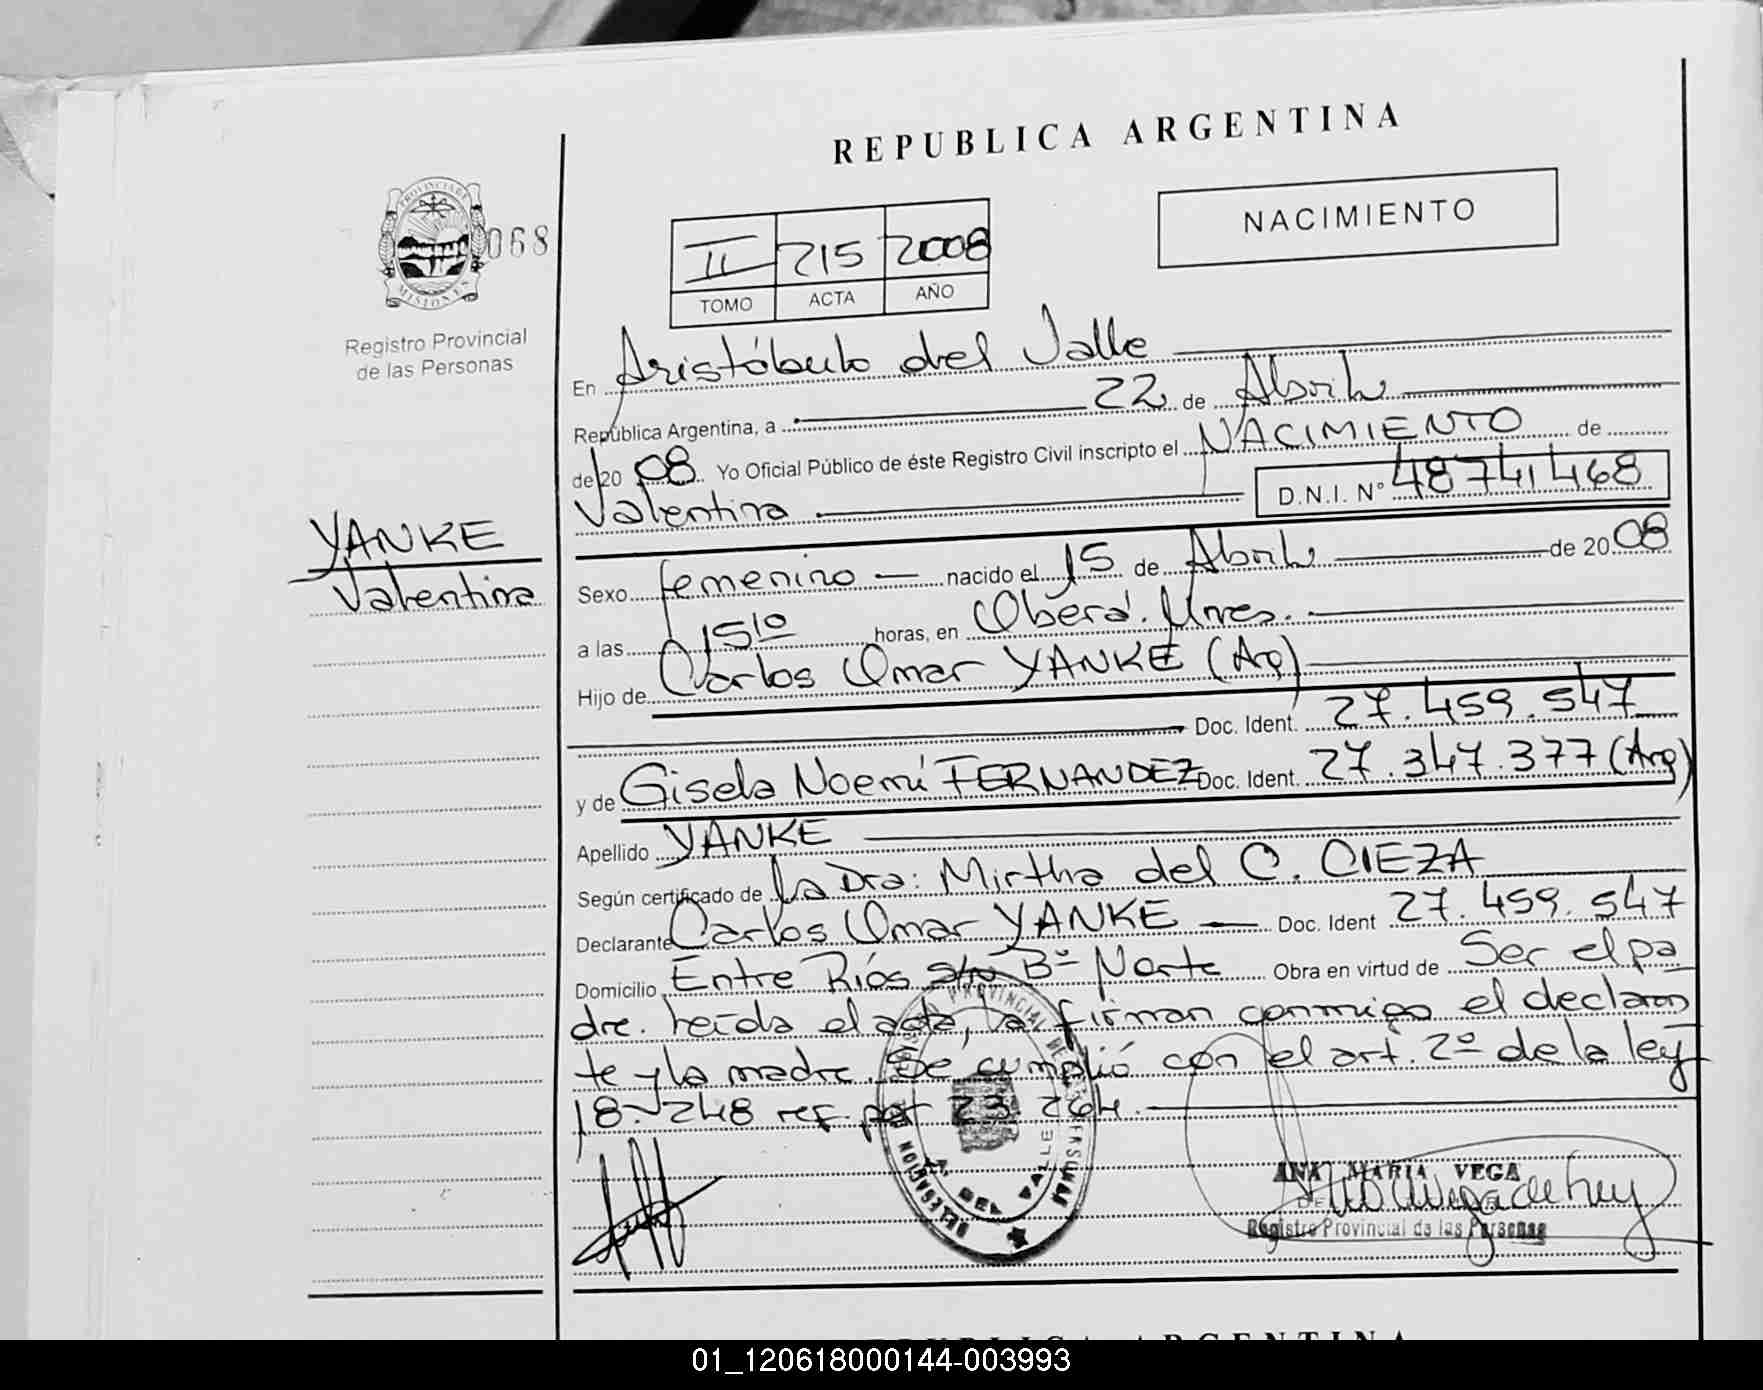 REPUBLICA ARGENTINA
NACIMIENTO
PROVINCIA DE
MISIONES
068
Registro Provincial
de las Personas
II 215 2008
TOMO ACTA AÑO
En Aristóbulo del Valle
República Argentina, a 22 de Abril
de 20 08 Yo Oficial Público de éste Registro Civil inscripto el NACIMIENTO de
Valentina D.N.I. Nº 48741468
YANKE
Valentina
Sexo femenino nacido el 15 de Abril de 20 08
a las 15 10 horas, en Oberá. Mnes.
Hijo de Carlos Omar YANKE (Arg)
Doc. Ident. 27.459.547
y de Gisela Noemí FERNANDEZ Doc. Ident. 27.347.377 (Arg)
Apellido YANKE
Según certificado de La Dra: Mirtha del C. CIEZA
Declarante Carlos Omar YANKE Doc. Ident 27.459.547
Domicilio Entre Ríos s/nº Bº Norte Obra en virtud de Ser el pa
dre. Leída el acta, la firman conmigo el declaran
te y la madre. Se cumplió con el art. 2º de la ley
18.248 ref. por 23.264.
REGISTRO PROVINCIAL DE LAS PERSONAS
DELEGACION
A. DEL VALLE
ANA MARIA VEGA
Registro Provincial de las Personas
REPUBLICA ARGENTINA
01_120618000144-003993